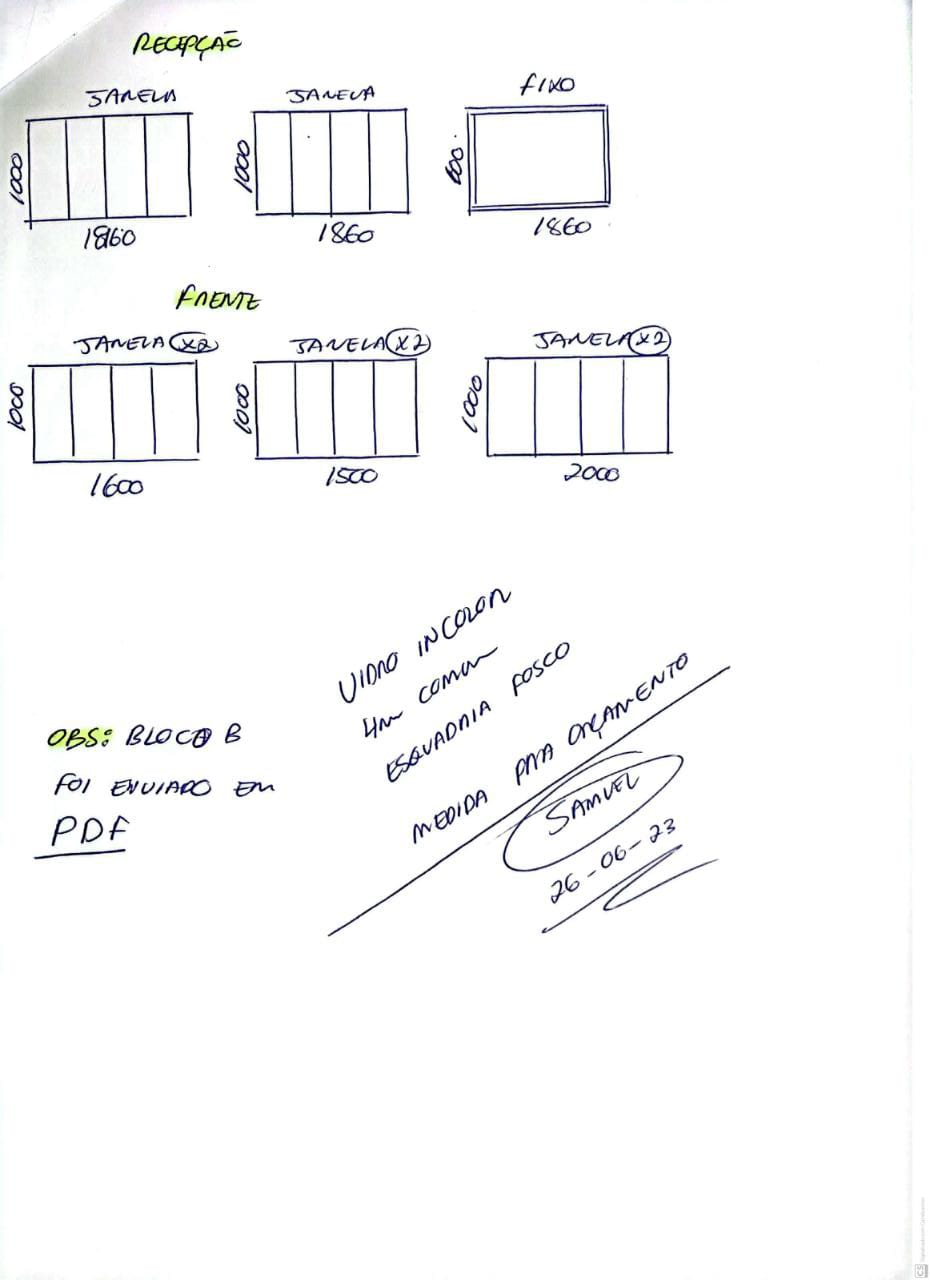 RECEPÇÃO
JANELA JANELA FIXO
1000 1000 600
1860 1860 1860
FRENTE
JANELA X2 JANELA X2 JANELA X2
1000 1000 1000
1600 1500 2000
VIDRO INCOLOR
4m COMUM
ESQUADRIA FOSCO
MEDIDA PARA ORÇAMENTO
SAMUEL
26-06-23
OBS: BLOCO B
FOI ENVIADO EM
PDF
CS